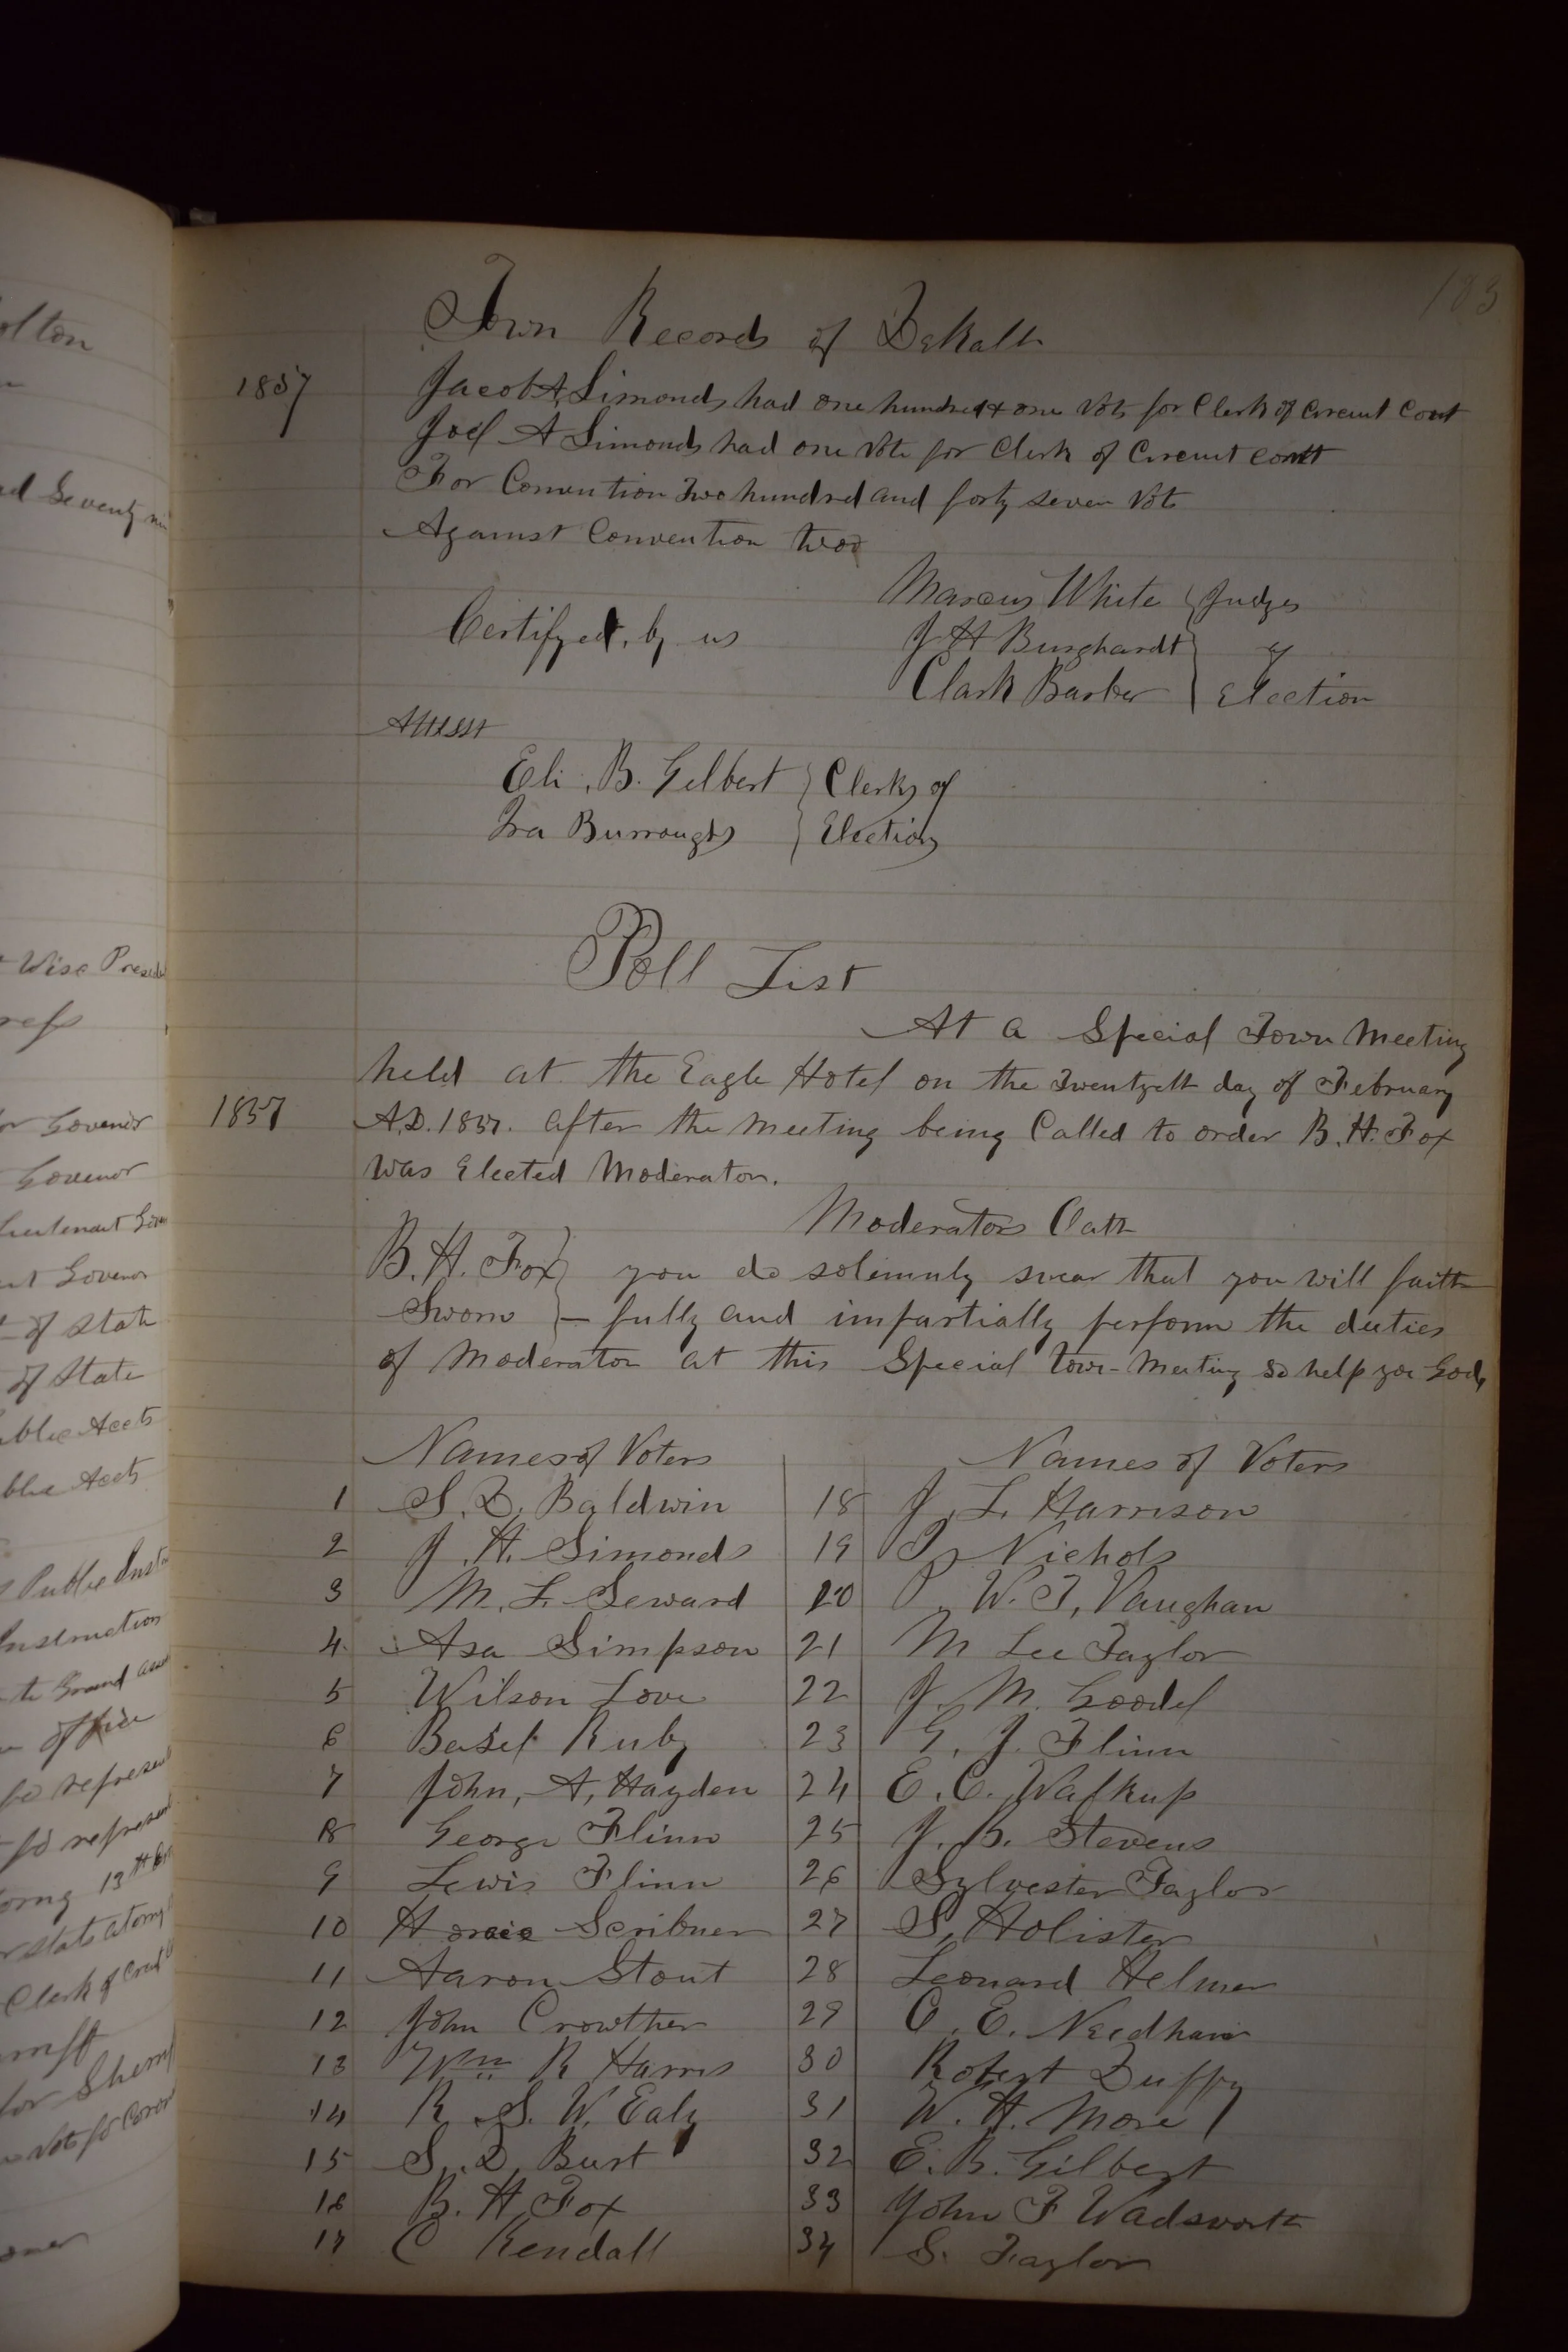 183
Town Records of DeKalb
1857
Jacob A Simonds had one hundred & one Vots for Clerk of Circuit Court
Joel A Simonds had one Vote for Clerk of Circuit Court
For Convention Two hundred and forty seven Vots
Against Convention two
Certifyed, by us
Marcus White } Judges
J H Burghardt } of
Clark Barber } Election
Attest
Eli . B. Gilbert } Clerks of
Ira Burroughs } Election
Poll List
At a Special Town Meeting
held at the Eagle Hotel on the Twentyeth day of February
1857
A.D. 1857. after the Meeting being Called to order B. H. Fox
was Elected Moderator.
Moderators Oath
B. H. Fox } you do solemnly swear that you will faith
Sworn } – fully and impartially perform the duties
of Moderator at this Special town-Meeting so help you God,
Names of Voters
1 S. D. Baldwin
2 J. H. Simonds
3 M. F. Seward
4 Asa Simpson
5 Wilson Love
6 Basel Ruby
7 John, A, Hayden
8 George Flinn
9 Lewis Flinn
10 Horace Scribner
11 Aaron Stout
12 John Crowther
13 Wm R Harris
14 R. S. W. Ealy
15 S. D. Burt
16 B. H Fox
17 C Kendall
Names of Voters
18 J. L. Harrison
19 Nichols
20 P. W. T, Vaughan
21 M Lee Taylor
22 J. M. Goodel
23 G. J. Flinn
24 E. C. Walkup
25 J. B. Stevens
26 Sylvester Taylor
27 S, Holister
28 Leonard Helmer
29 C. E. Needham
30 Robert Duffy
31 W. H. More
32 E. B. Gilbert
33 John F Wadsworth
34 S. Taylor
olton
ed Seventy
Wise
for Govenor
Govenor
Lieutenant
Govenor
of State
of State
Public Accts
Public Accts
Public
Instruction
Grand
office
for
for
13th
Clerk of
for
Vots for